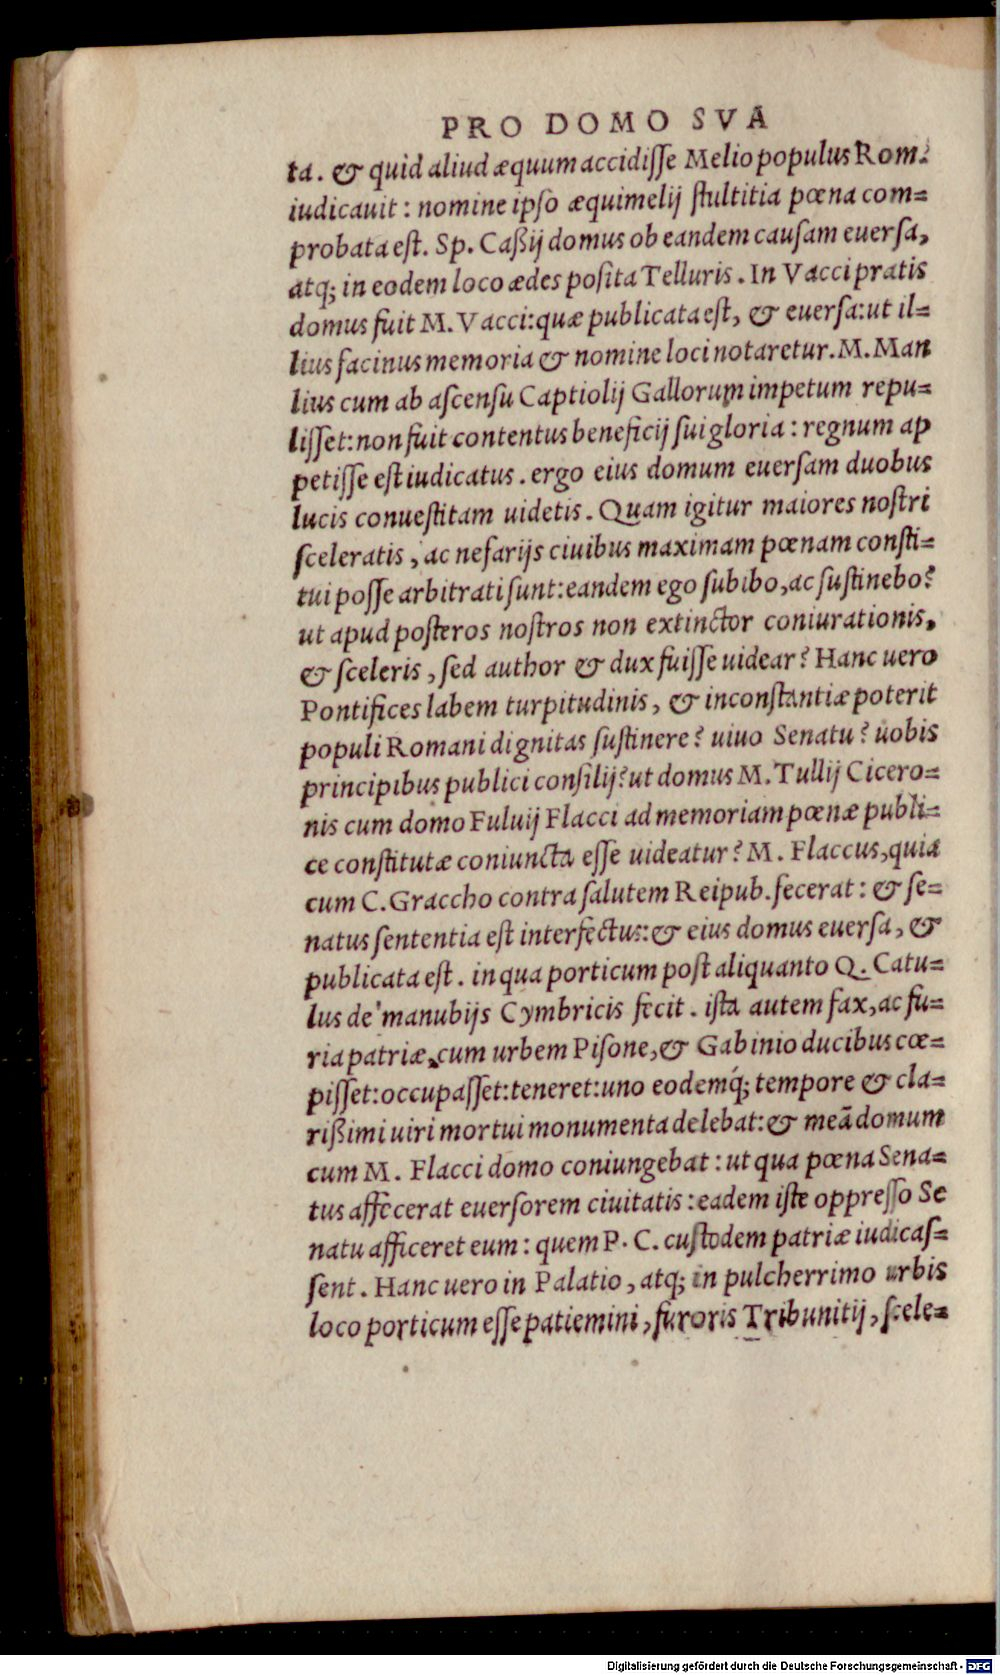 PRO DOMO SVA
ta. & quid aliud æquum accidiſſe Melio populus Rom.
iudicauit: nomine ipſo æquimelij ſtultitia pœna com=
probata eſt. Sp. Caßij domus ob eandem cauſam euerſa,
atq; in eodem loco ædes poſita Telluris. In Vacci pratis
domus fuit M. Vacci: quæ publicata eſt, & euerſa: ut il=
lius facinus memoria & nomine loci notaretur. M. Man
lius cum ab aſcenſu Captiolij Gallorum impetum repu=
liſſet: non fuit contentus beneficij ſui gloria: regnum ap
petiſſe eſt iudicatus. ergo eius domum euerſam duobus
lucis conueſtitam uidetis. Quam igitur maiores noſtri
ſceleratis, ac nefarijs ciuibus maximam pœnam conſti=
tui poſſe arbitrati ſunt: eandem ego ſubibo, ac ſuſtinebo?
ut apud poſteros noſtros non extinctor coniurationis,
& ſceleris, ſed author & dux fuiſſe uidear? Hanc uero
Pontifices labem turpitudinis, & inconſtantiæ poterit
populi Romani dignitas ſuſtinere? uiuo Senatu? uobis
principibus publici conſilij? ut domus M. Tullij Cicero=
nis cum domo Fuluij Flacci ad memoriam pœnæ publi=
ce conſtitutæ coniuncta eſſe uideatur? M. Flaccus, quia
cum C. Graccho contra ſalutem Reipub. fecerat: & ſe=
natus ſententia eſt interfectus: & eius domus euerſa, &
publicata eſt. in qua porticum poſt aliquanto Q. Catu=
lus de manubijs Cymbricis fecit. iſta autem fax, ac fu=
ria patriæ, cum urbem Piſone, & Gabinio ducibus cœ=
piſſet: occupaſſet: teneret: uno eodemq́; tempore & cla=
rißimi uiri mortui monumenta delebat: & meã domum
cum M. Flacci domo coniungebat: ut qua pœna Sena=
tus affecerat euerſorem ciuitatis: eadem iſte oppreſſo Se
natu afficeret eum: quem P. C. cuſtodem patriæ iudicaſ=
ſent. Hanc uero in Palatio, atq; in pulcherrimo urbis
loco porticum eſſe patiemini, furoris Tribunitij, ſcele=
Digitalisierung gefördert durch die Deutsche Forschungsgemeinschaft - DFG